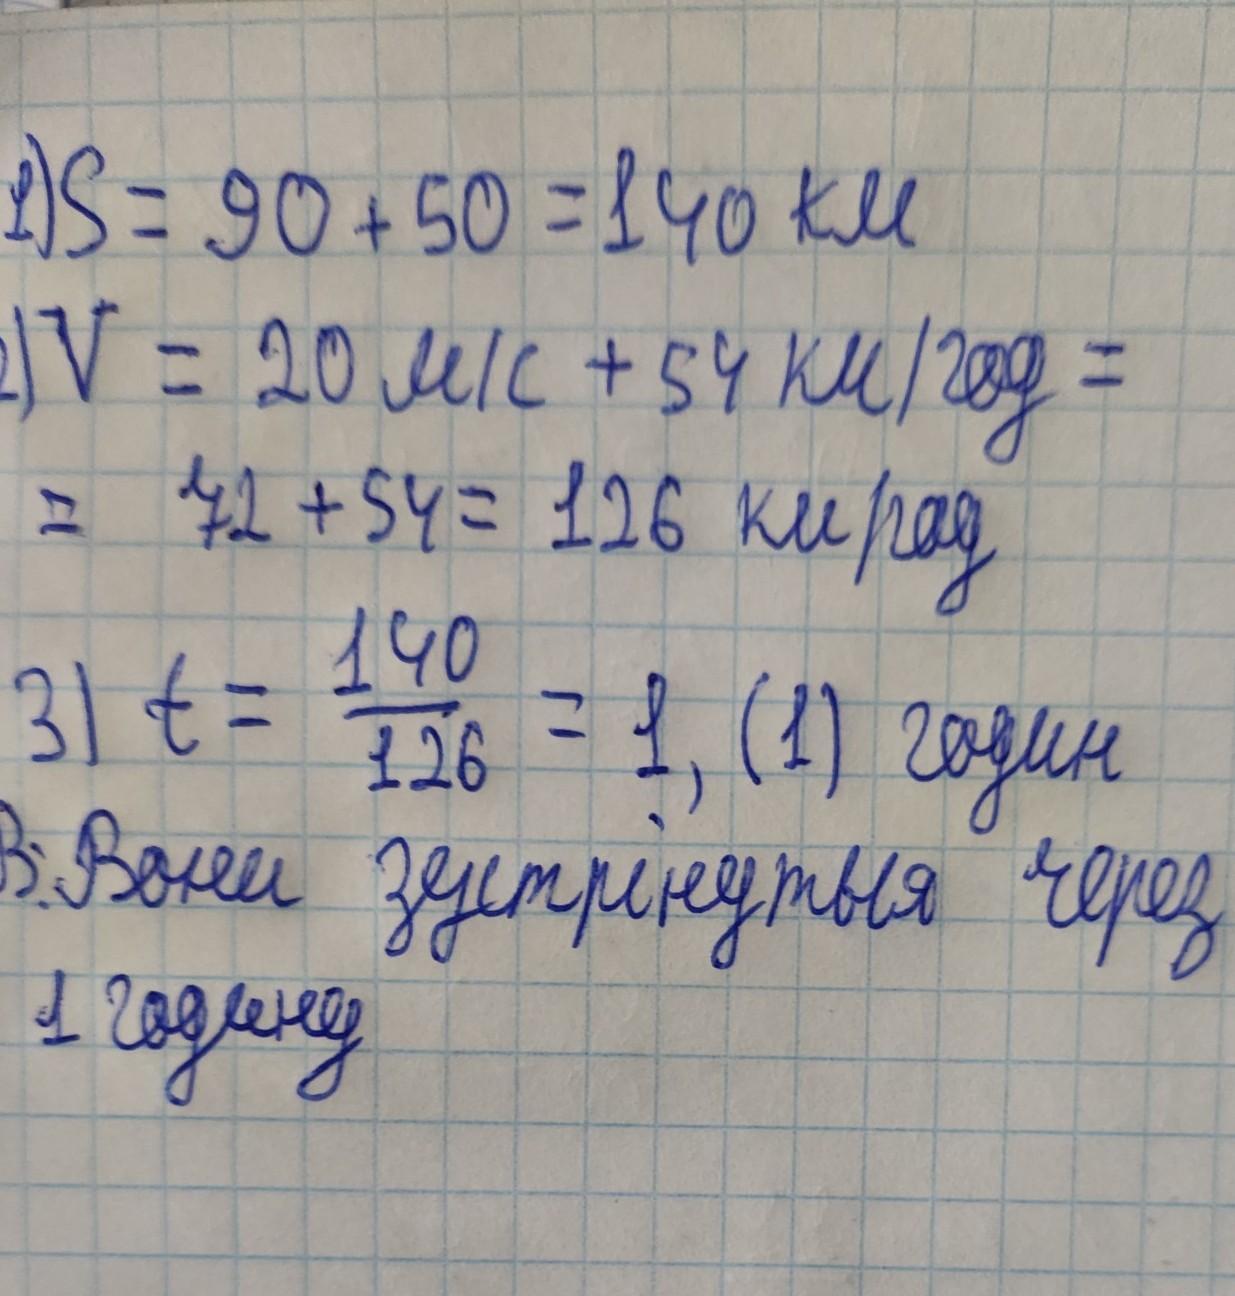 1) S = 90 + 50 = 140 км
2) V = 20 м/с + 54 км/год =
= 72 + 54 = 126 км/год
3) t = 140/126 = 1,(1) годин
В: Вони зустрінуться через
1 годину